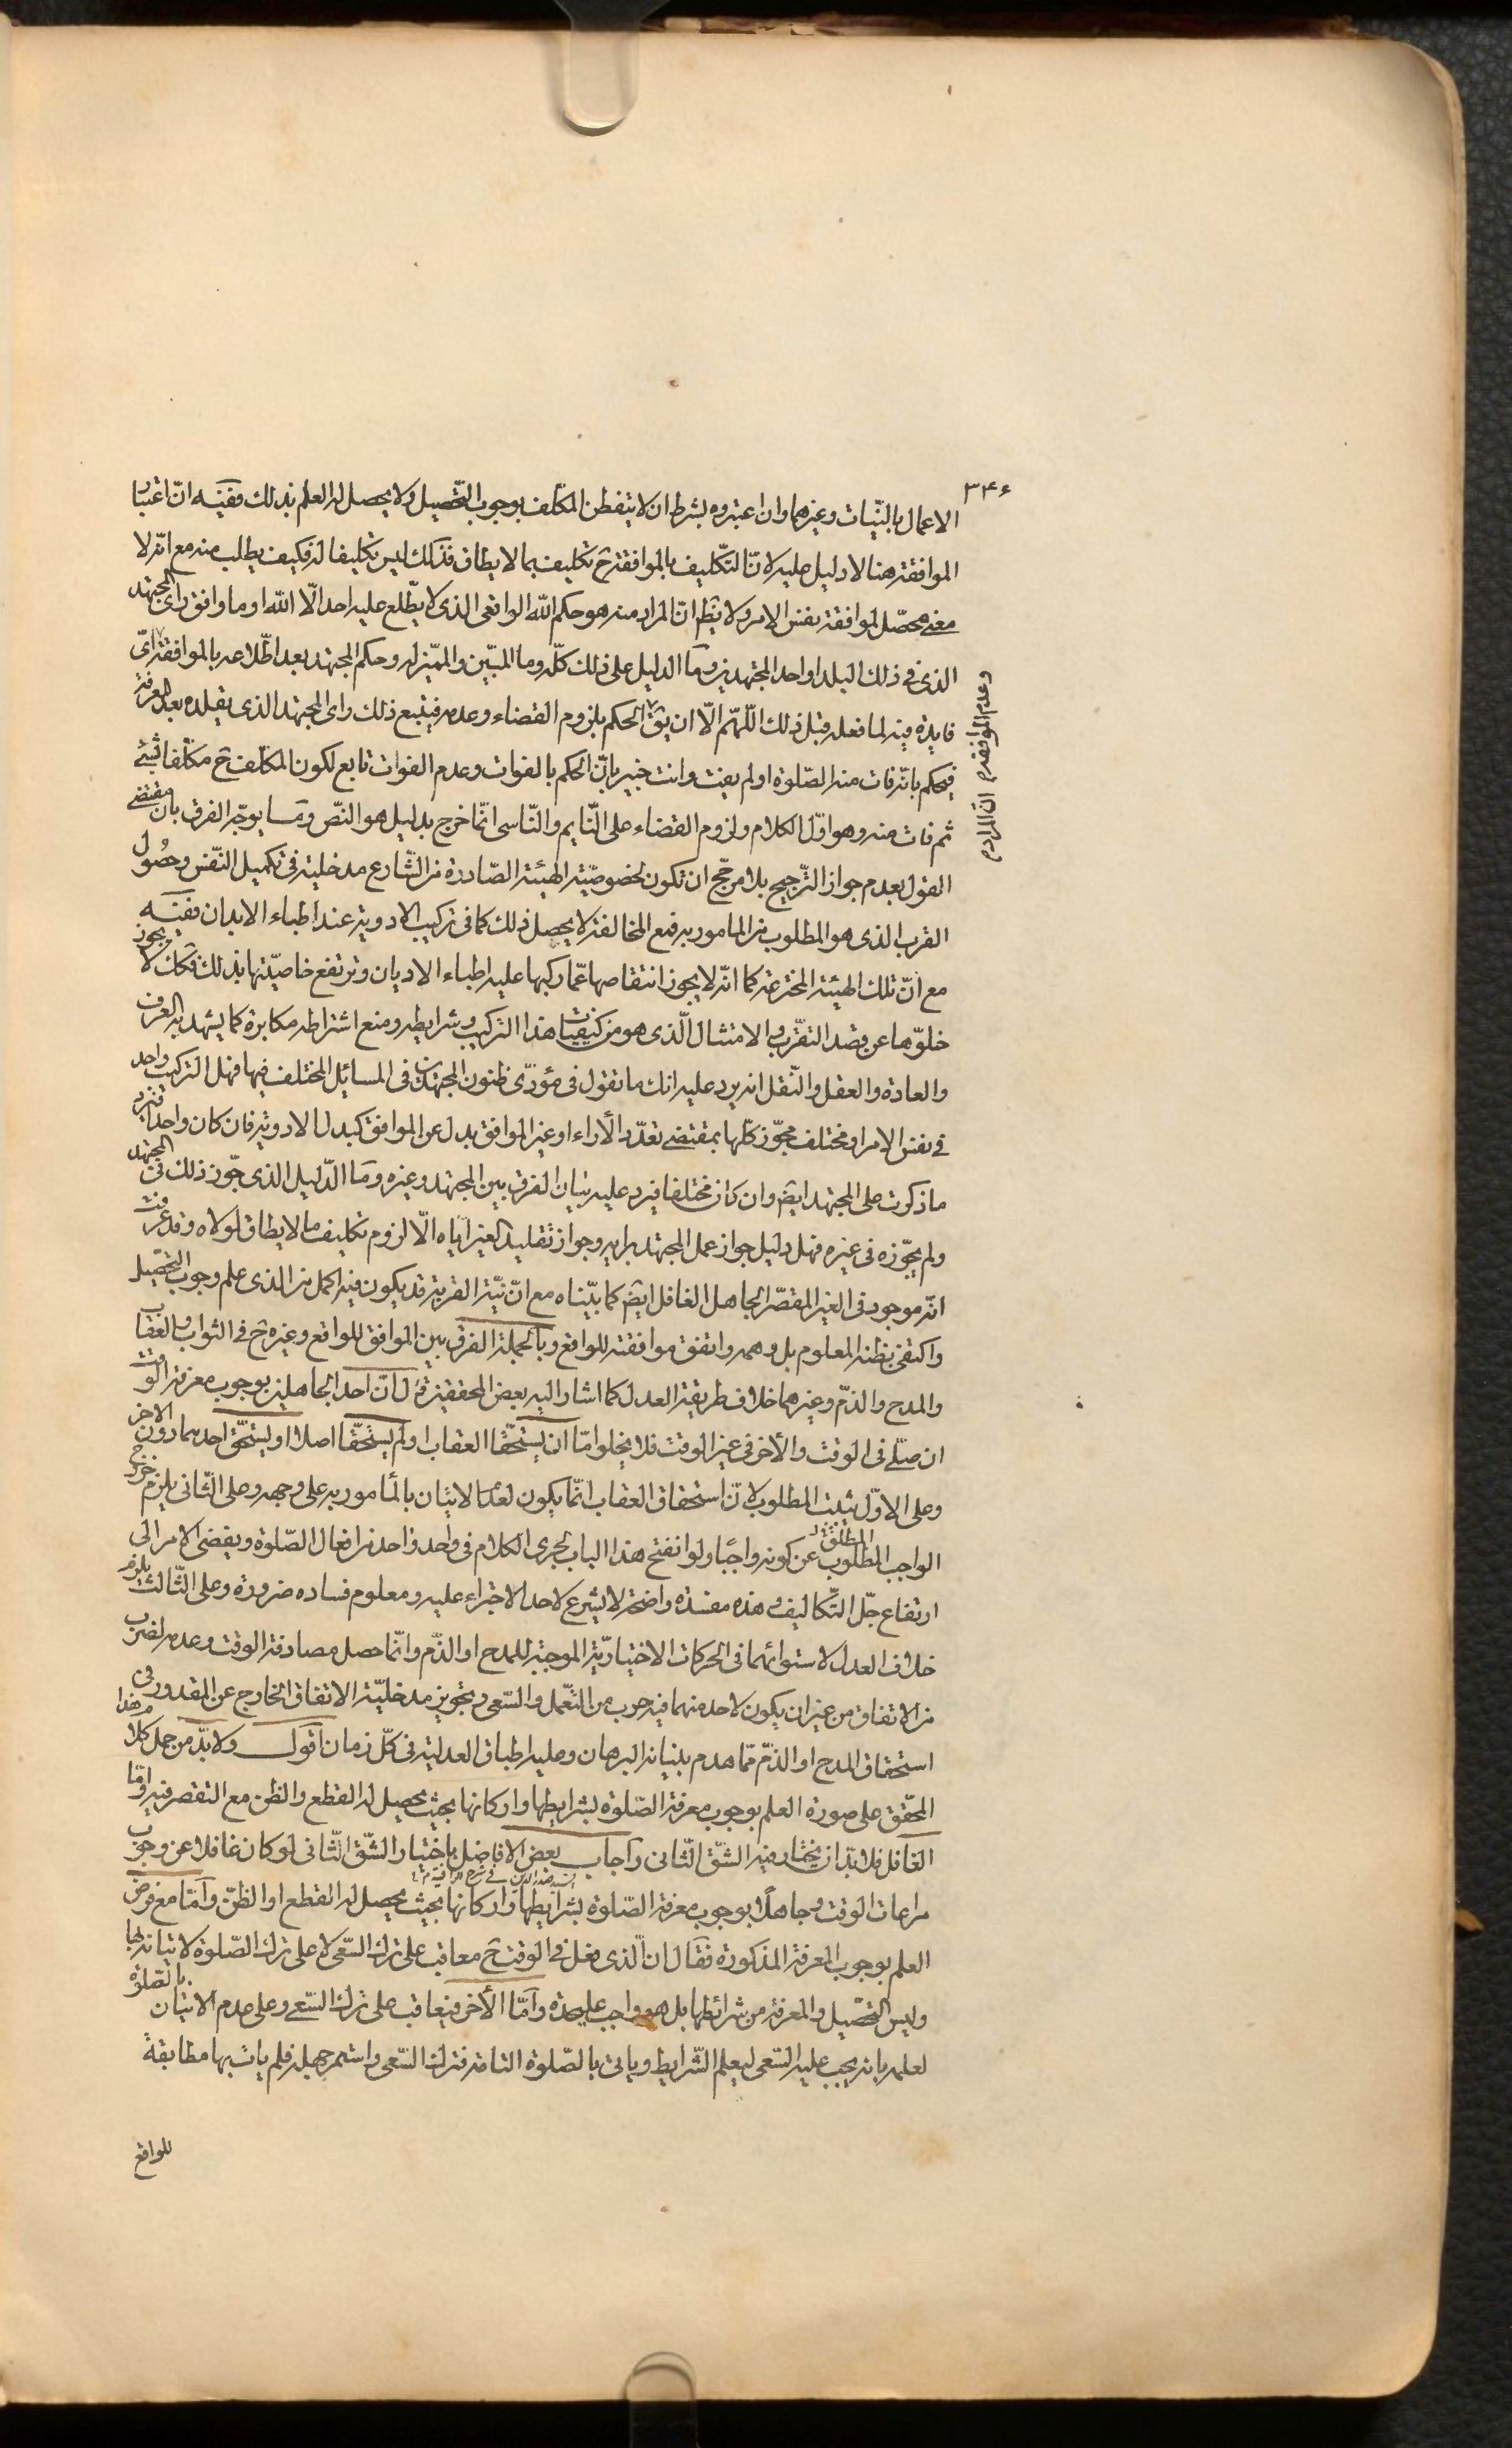 ٣٤٤
الاعمال بالنيّات وغيرهما وان اعتبروه بشرط ان لا يتفطن المكلف بوجوب التحصيل ولا يحصل له العلم بذلك ففيه انّ اعتبار
الموافقة هنا لا دليل عليه لانّ التكليف بالموافقة ح تكليف بما لا يطاق فذلك ليس تكليفا له فكيف يطلب منه مع انّه لا
معنى محصّل لموافقة نفس الامر ولا يظهر انّ المراد منه هو حكم الله الواقعى الذى لا يطّلع عليه احد الّا الله او ما وافق راى المجتهد
الذى فى ذلك البلد او احد المجتهدين وما الدليل على ذلك كلّه وما المبيّن والمميّز له وحكم المجتهد بعد اطّلاعه بالموافقة اىّ
وعدم الموافقة
فايدة فيه لما فعله قبل ذلك اللّهمّ الّا ان يق الحكم بلزوم القضاء وعدمه فيتبع ذلك راى المجتهد الذى يقلده بعد المعرفة
فيحكم بانّه فات منه الصّلوة او لم يفت وانت خبير بانّ الحكم بالفوات وعدم الفوات تابع لكون المكلف ح مكلّفا بشئ
ثم فات منه وهو اوّل الكلام ولزوم القضاء على النّايم والنّاسى انّما خرج بدليل هو النصّ وما يوجّه الفرق بان مقتضى
القول بعدم جواز التّرجيح بلا مرجّح ان تكون لخصوصيّة الهيئة الصّادرة من الشّارع مدخلية فى تكميل النّفس وحصول
القرب الذى هو المطلوب من المامور به فمع المخالفة لا يحصل ذلك كما فى تركيب الادوية عند اطباء الابدان ففيه
مع انّ تلك الهيئة المخترعة كما انّه لا يجوز انتقاصها عمّا ركبها عليه اطباء الاديان وترتفع خاصيّتها بذلك فكك لا يجوز
خلوّها عن قصد التقرّب والامتثال الّذى هو من كيفيّات هذا التركيب وشرايطه ومنع اشتراطه مكابرة كما يشهد به العرف
والعادة والعقل والنّقل انه يرد عليه انك ما تقول فى مؤدّى ظنون المجتهدين فى المسائل المختلف فيها فهل التركيب واحد
فى نفس الامر او مختلف مجوّز كلّها بمقتضى تعدّد الأراء او غير الموافق بدل عن الموافق كبدل الادوية فان كان واحدا فيرد
ما ذكرت على المجتهد ايض وان كان مختلفا فيرد عليه بيان الفرق بين المجتهد وغيره وما الدّليل الذى جوّز ذلك فى المجتهد
ولم يجوّزه فى غيره فهل دليل جواز عمل المجتهد برايه وجواز تقليد الغير ايّاه الّا لزوم تكليف ما لا يطاق لولاه وقد عرفت
انّه موجود فى الغير المقصّر الجاهل الغافل ايض كما بيّناه مع انّ نيّة القربة قد يكون فيه اكمل من الذى علم وجوب التحصيل
واكتفى بظنه المعلوم بل وهمه واتفق موافقته للواقع وبالجملة الفرق بين الموافق للواقع وغيره ح فى الثواب والعقاب
والمدح والذّم وغيرهما خلاف طريقة العدل كما اشار اليه بعض المحققين قال انّ احد الجاهلين بوجوب معرفة الوقت
ان صلّى فى الوقت والأخر فى غير الوقت فلا يخلو امّا ان يستحقّا العقاب او لم يستحقّا اصلا او يستحقّ احدهما دون الاخر
وعلى الاوّل يثبت المطلوب لانّ استحقاق العقاب انّما يكون لعدم الاتيان بالمأمور به على وجهه وعلى الثّانى يلزم خروج
المطلق
الواجب المطلوب عن كونه واجبًا ولو انفتح هذا الباب لجرى الكلام فى واحد واحد من افعال الصّلوة ويفضى الامر الى
ارتفاع جلّ التّكاليف وهذه مفسدة واضحة لا يشرع لاحد الاجتراء عليه ومعلوم فساده ضرورة وعلى الثّالث يلزم
خلاف العدل لاستوائهما فى الحركات الاختياريّة الموجبة للمدح او الذّم وانّما حصل مصادفة الوقت وعدمه لضرب
من الاتفاق من غير ان يكون لاحد منهما فيه ضرب من التّعمل والسّعى وتجويز مدخليّة الاتفاق الخارج عن المقدور فى
استحقاق المدح او الذّم ممّا هدم بنيانه البرهان وعليه اطباق العدليّة فى كلّ زمان اقول ولا بدّ من حمل كلام هذا
المحقّق على صورة العلم بوجوب معرفة الصّلوة بشرايطها واركانها بحيث يحصل له القطع والظن مع التقصير فيه وامّا
الغافل فلا بدّ ان يختار فيه الشقّ الثّانى واجاب بعض الافاضل باختيار الشّق الثّانى لو كان غافلا عن وجوب
السيد صدر الدين فى شرح الوافية
مراعات الوقت وجاهلًا بوجوب معرفة الصّلوة بشرايطها واركانها بحيث يحصل له القطع او الظنّ وأمّا مع فرض
العلم بوجوب المعرفة المذكورة فقال ان الّذى فعل فى الوقت ح معاقب على ترك السّعى لا على ترك الصّلوة لاتيانه بها
وليس التحصّيل والمعرفة من شرائطها بل هو واجب عليحدة وأمّا الأخر فيعاقب على ترك السّعى وعلى عدم الاتيان بالصّلوة
لعلمه بانه يجب عليه السّعى ليعلم الشّرايط وياتى بالصّلوة التامة فترك السّعى واستمر جهله فلم يات بها مطابقة
للواقع